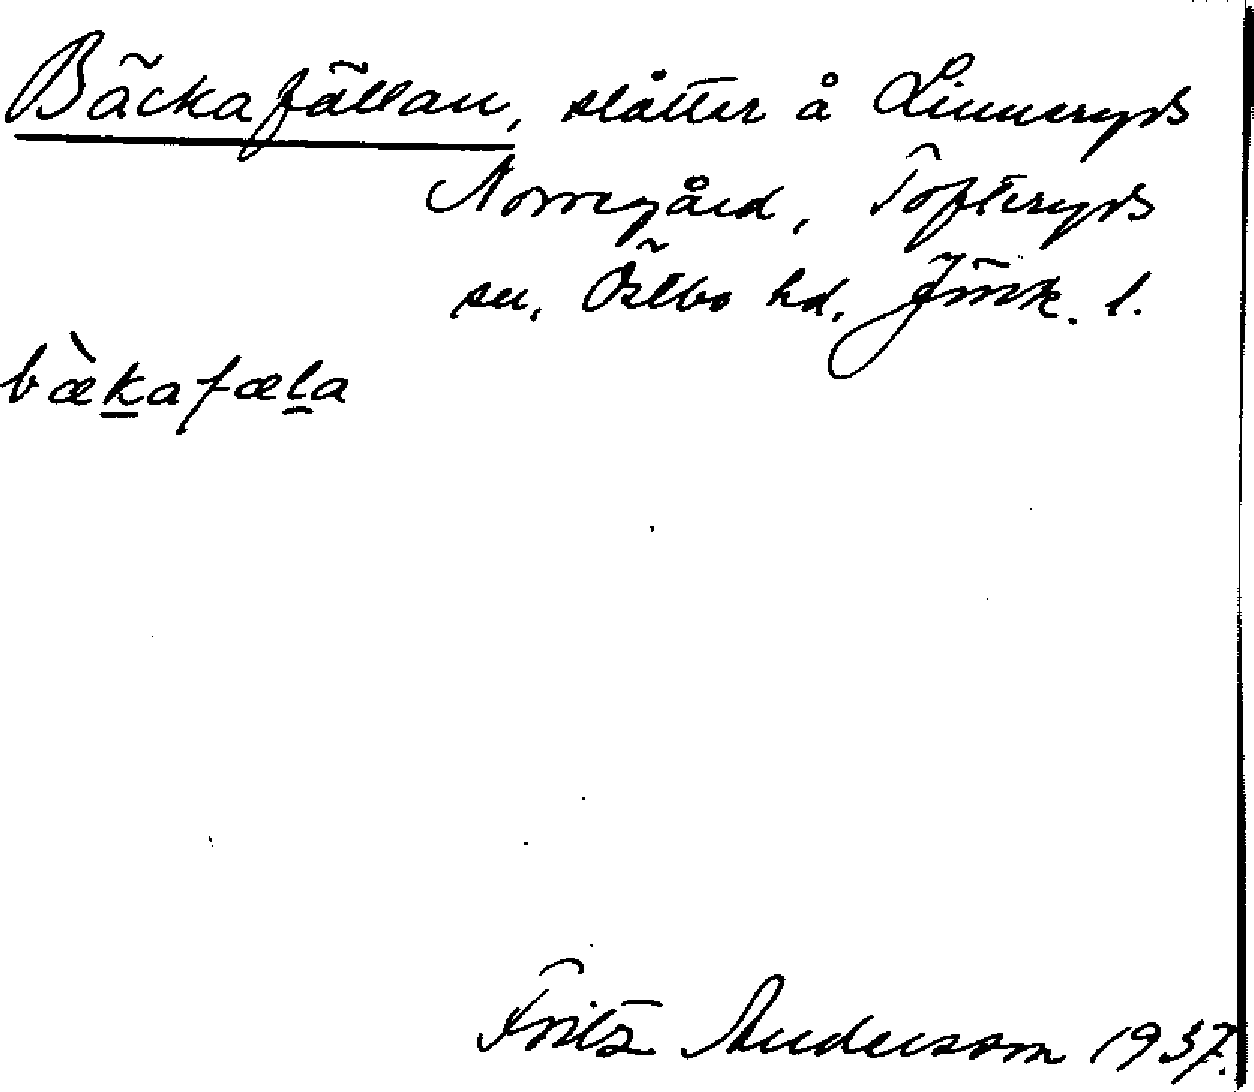 Bäckafällan, slåtter å Linneryds
Norregård, Tofteryds
sn, Östbo hd, Jönk. l.
bæ̀kafæla
Fritz Anderson 1937.